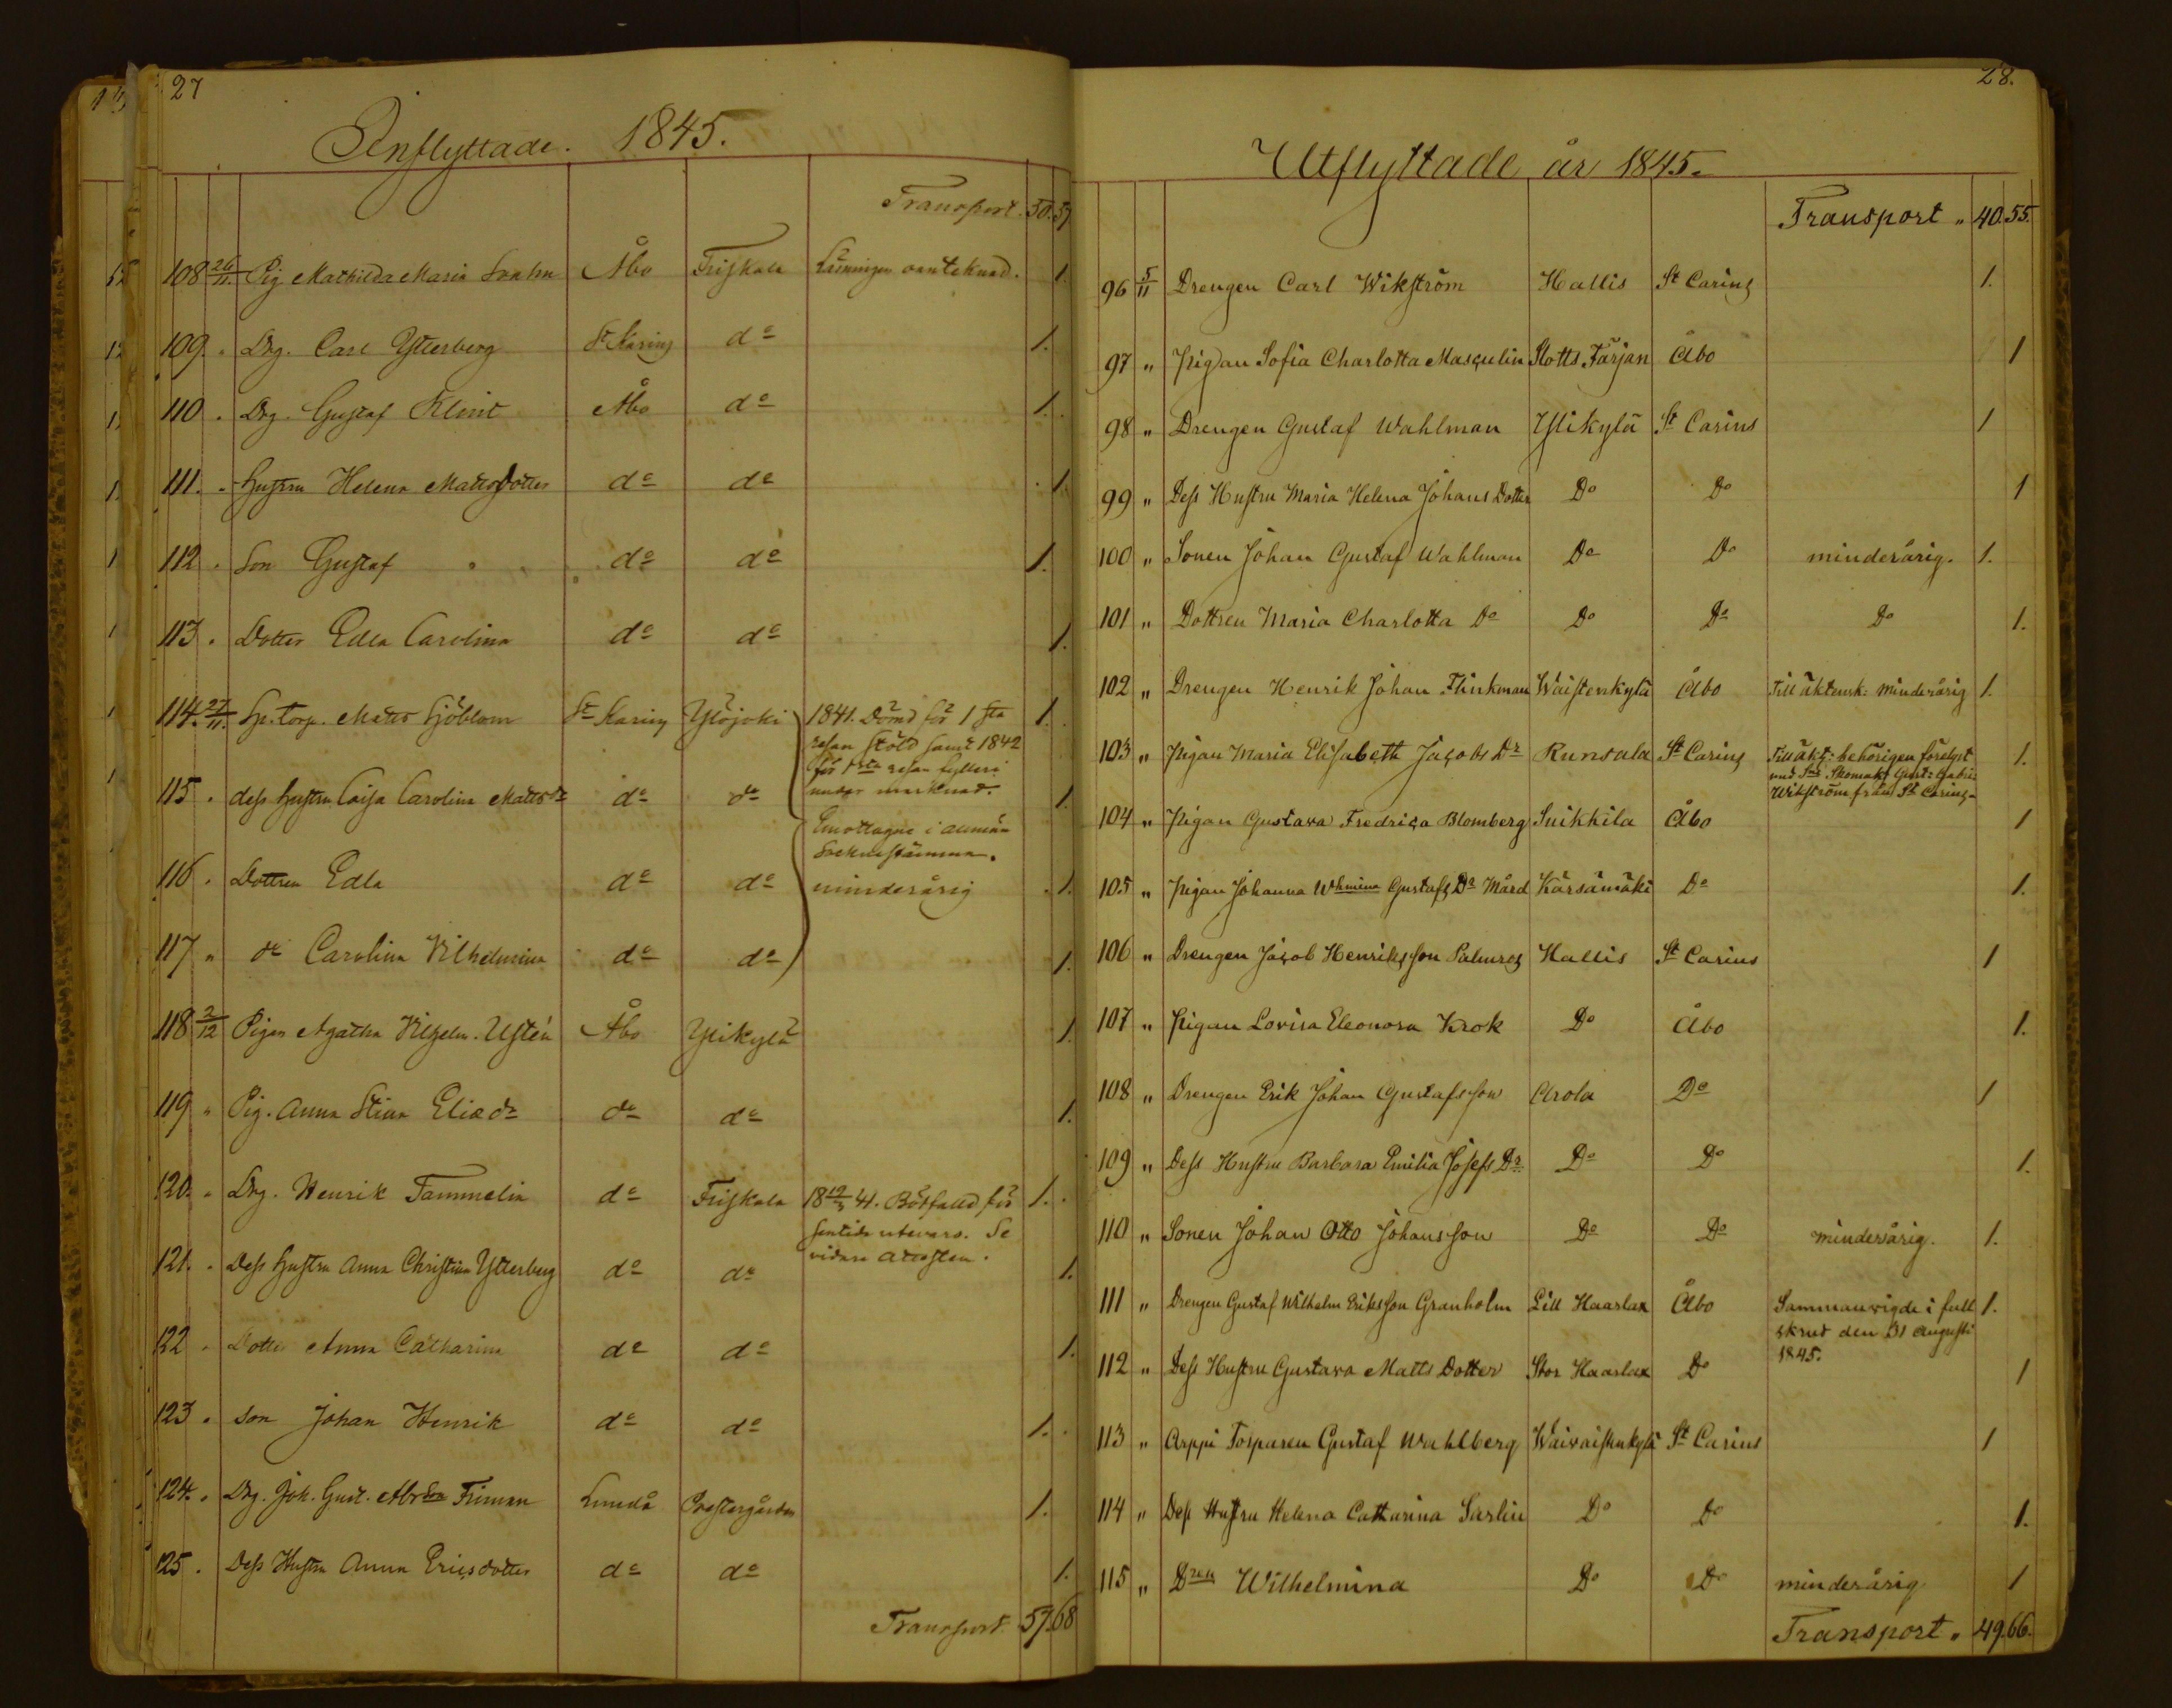 27
Inflyttade. 1845.
Transport. 50.57
108 26/11. Pig Mathilda Maria Åbo Friskala Läsningen oanteknad. 1.
109. " Drg. Carl Ytterberg St Karins do 1.
110 " Drg. Gustaf Klint Åbo do 1.
111. " Hustru Helena Mattsdotter do do 1.
112 " Son Gustaf do do 1.
113 " Dotter Edla Carolina do do 1.
114. 27/11. Sp. torp. Matts Sjöblom St Karins Ylöjoki 1841. Dömd för 1 sta 1.
resan stöld samt 1842
för 1sta resan fylleri
under marknad.
115 " dess hustru Caisa Carolina Mattsdr do do 1.
Emottagne i allmän
Socknestämma.
116 " Dottren Edla do do minderårig 1.
117 " do Carolina Vilhelmina do do 1.
118 2/12 Pigan Agatha Vilhelm. Ustén Åbo Ylikylä 1.
119 " Pig. Anna Stina Eliædr do do 1.
120. " Drg. Henrik Tammelin do Friskala 18 19/3 41. Bötfälld för 1.
utevaro. Se
vidare attesten.
121. " Dess hustru Anna Christina Ytterberg do do 1.
122 " Dotter Anna Catharina do do 1.
123 " Son Johan Henrik do do 1.
124. " Drg. Joh. Gust. Abrsson Friman Lundå Prestergården 1.
125 " Dess Hustru Anna Ericsdotter do do 1.
Transport. 57.68
28.
Utflyttade år 1845.
Transport " 40.55.
96 5/11 Drengen Carl Wikström Hallis St Carins 1.
97 " Pigan Sofia Charlotta Masculin Slotts Färjan Åbo 1
98 " Drengen Gustaf Wahlman Ylikylä St Carins 1
99 " Dess Hustru Maria Helena Johans Dotter Do Do 1
100 " Sonen Johan Gustaf Wahlman Do Do minderårig. 1.
101 " Dottren Maria Charlotta Do Do Do Do 1.
102 " Drengen Henrik Johan Flinkman Waistenkylä Åbo Till äktensk: minderårig 1.
103 " Pigan Maria Elisabeth Jacobs Dr Runsala St Carins Till äkt: behörigen förelyst 1.
med Skomak: Gust: Gabri:
Wikström från St Carins
104 " Pigan Gustava Fredrica Blomberg Suikkila Åbo 1
105 " Pigan Johanna Whmina Gustafs Dr Mård Kärsämäki Do 1.
106 " Drengen Jacob Henriksson Palmros Hallis St Carins 1
107 " Pigan Lovisa Eleonora Krok Do Åbo 1.
108 " Drengen Erik Johan Gustafsson Arola Do 1
109 " Dess Hustru Barbara Emilia Josefs Dr Do Do 1.
110 " Sonen Johan Otto Johansson Do Do minderårig. 1.
111 " Drengen Gustaf Wilhelm Eriksson Granholm Lill Haarlax Åbo Sammanvigde i full 1.
skrud den 31 Augusti
1845.
112 " Dess Hustru Gustava Matts Dotter Stor Haarlax Do 1
113 " Arppi Torparen Gustaf Wahlberg Waivaistenkylä St Carins 1
114 " Dess Hustru Helena Catharina Sarlin Do Do 1.
115 " Dren Wilhelmina Do Do minderårig 1
Transport " 49.66.